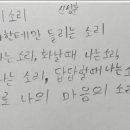 소리
신일호
한테만 들리는 소리
소리, 화날때 나는 소리,
나는 소리, 답답할때 나는 소
로 나의 마음의 소리